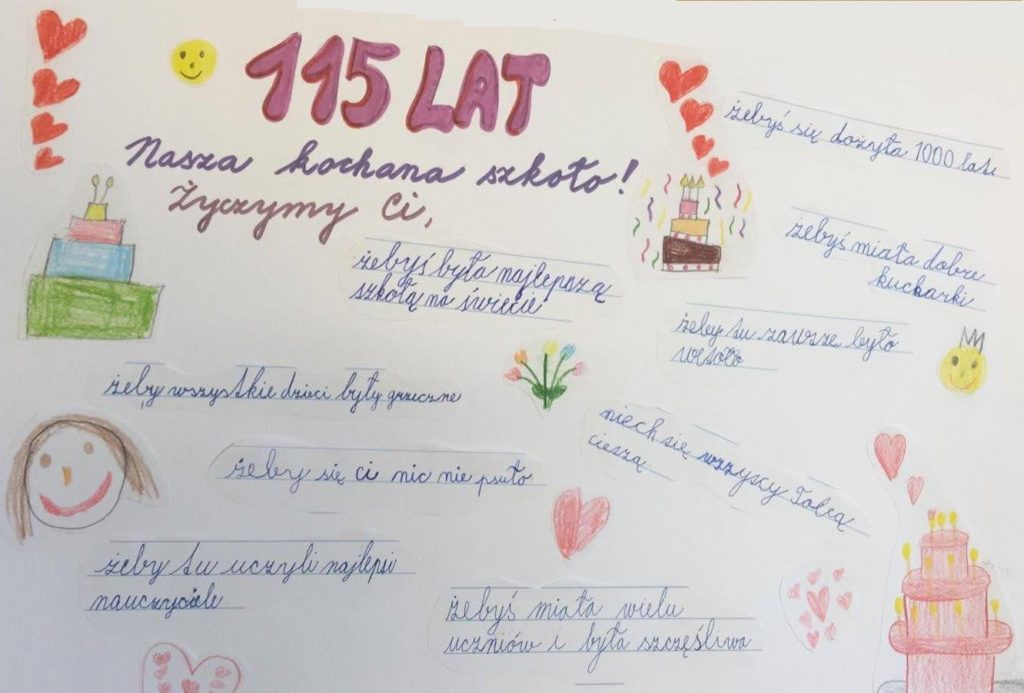 115 LAT
Nasza kochana szkoło!
Życzymy Ci,
żebyś się dożyła 1000 lat.
żebyś była najlepszą
szkołą na świecie
żebyś miała dobre
kucharki
żeby tu zawsze było
wesoło
żeby wszystkie dzieci były grzeczne
niech się wszyscy Tobą
cieszą.
żeby się ci nic nie psuło
żeby tu uczyli najlepsi
nauczyciele
żebyś miała wielu
uczniów i była szczęśliwa